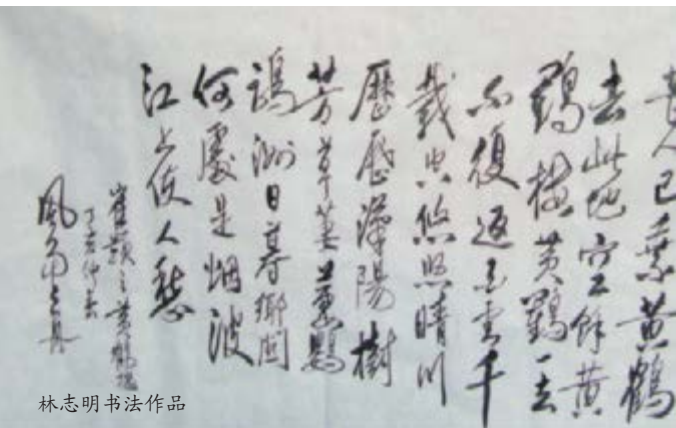 昔人已乘黄鶴
去此地空餘黄
鶴樓黄鶴一去
不復返白雲千
載空悠悠晴川
歷歷漢陽樹
芳草萋萋鸚
鵡洲日暮鄉関
何處是烟波
江上使人愁
崔顥之黄鶴樓
丁亥仲春
林志明书法作品